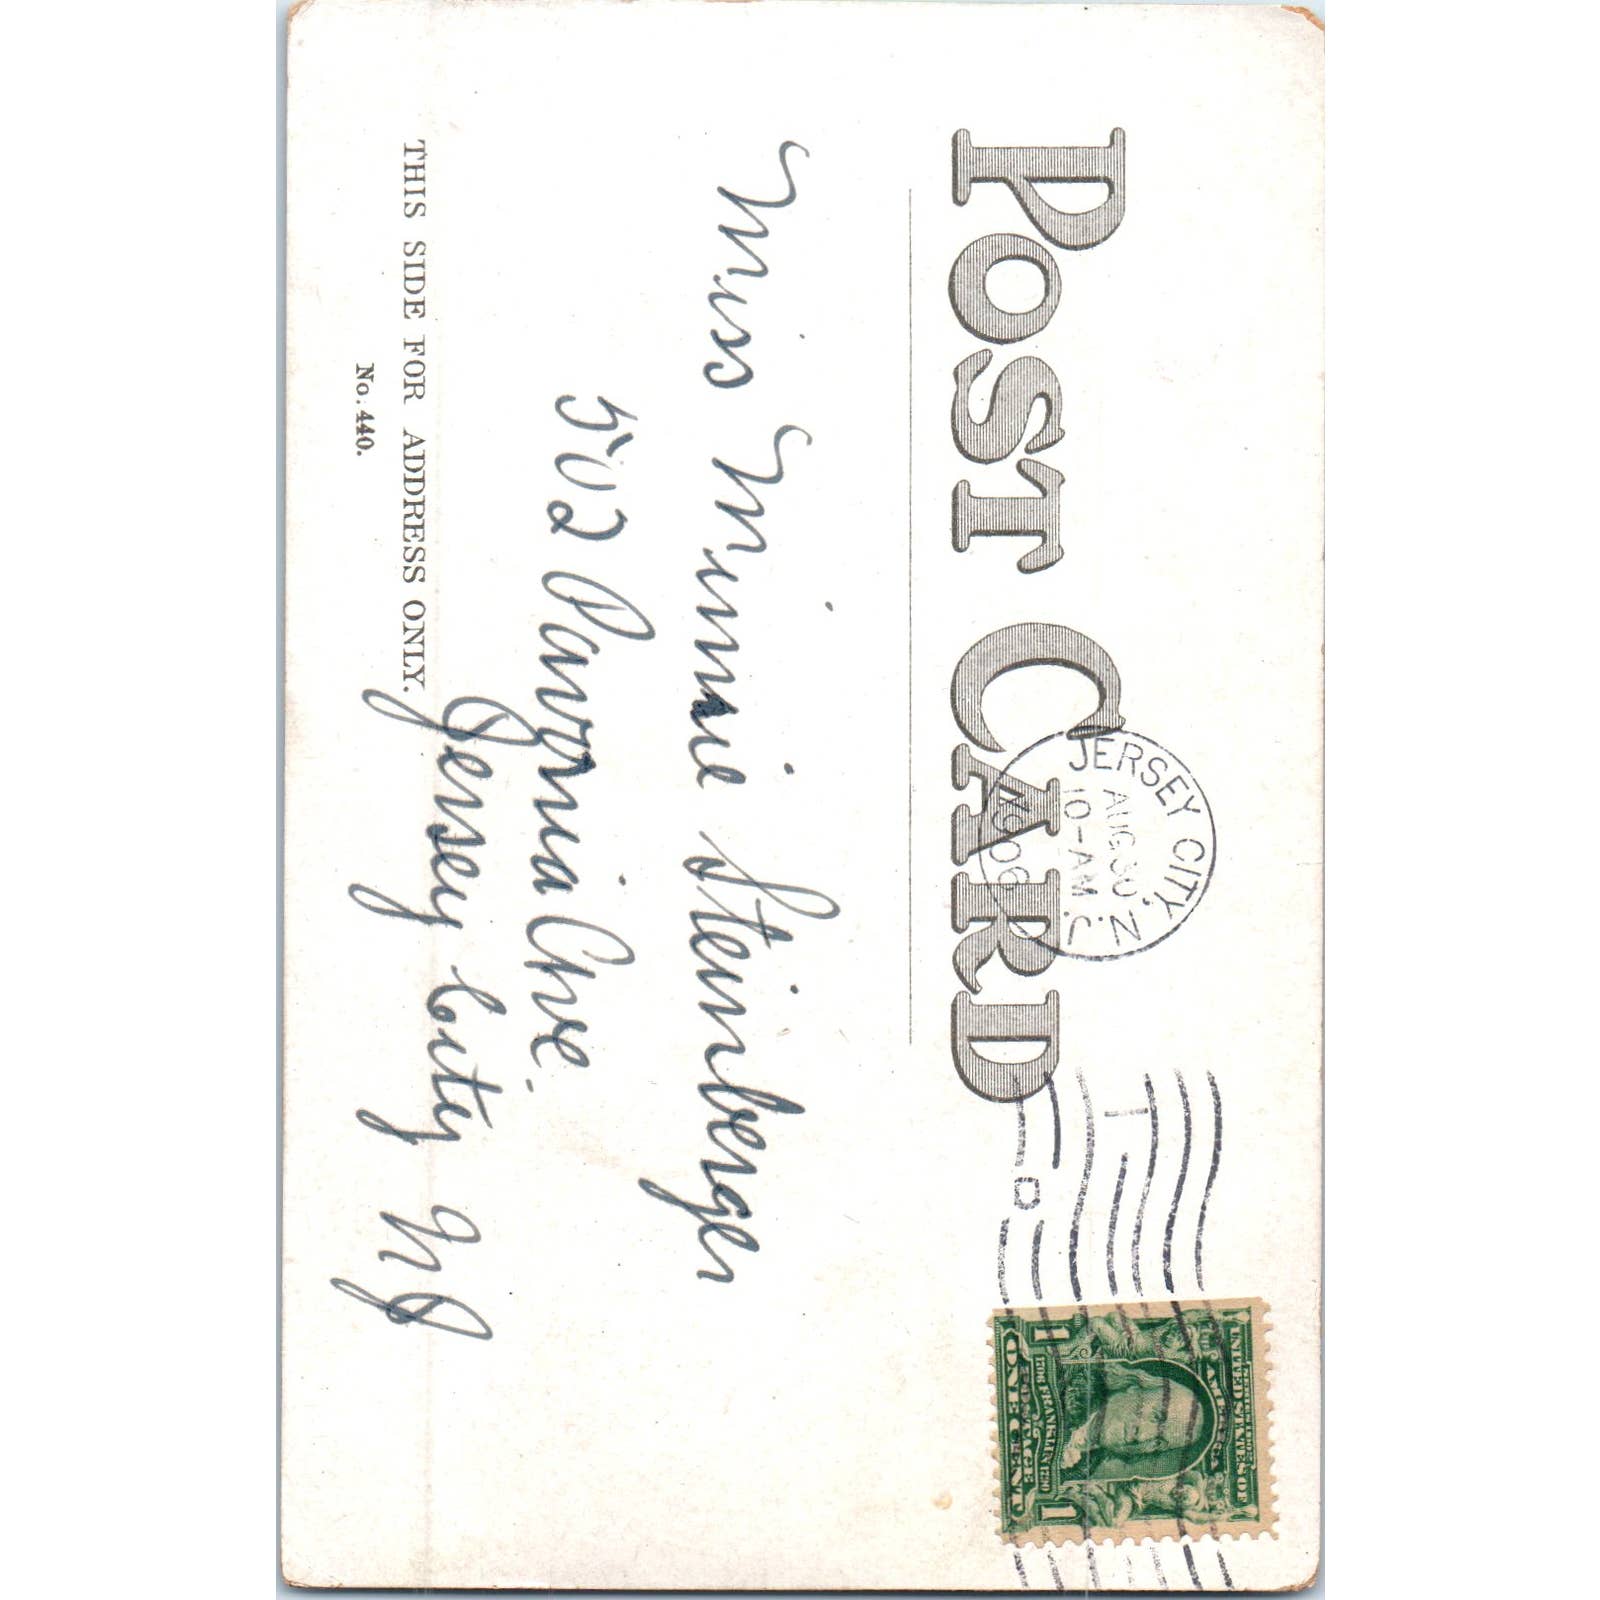 POST CARD
JERSEY CITY, N.J.
AUG 30
10-AM
1906
UNITED STATES OF
AMERICA
1706 FRANKLIN 1790
POSTAGE
1 ONE CENT 1
Miss Minnie Steinberger
502 Pavonia Ave.
Jersey City N J
THIS SIDE FOR ADDRESS ONLY.
No. 440.